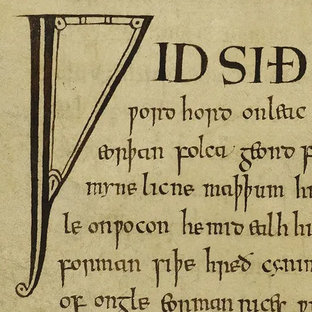 ǷID SIÐ
ƿord hord onleac
eorþan folca geond f
myne licne maþþum hi
le onƿocon he mid ealh hi
forman siþe hreð cynin
of ongle eorman rices